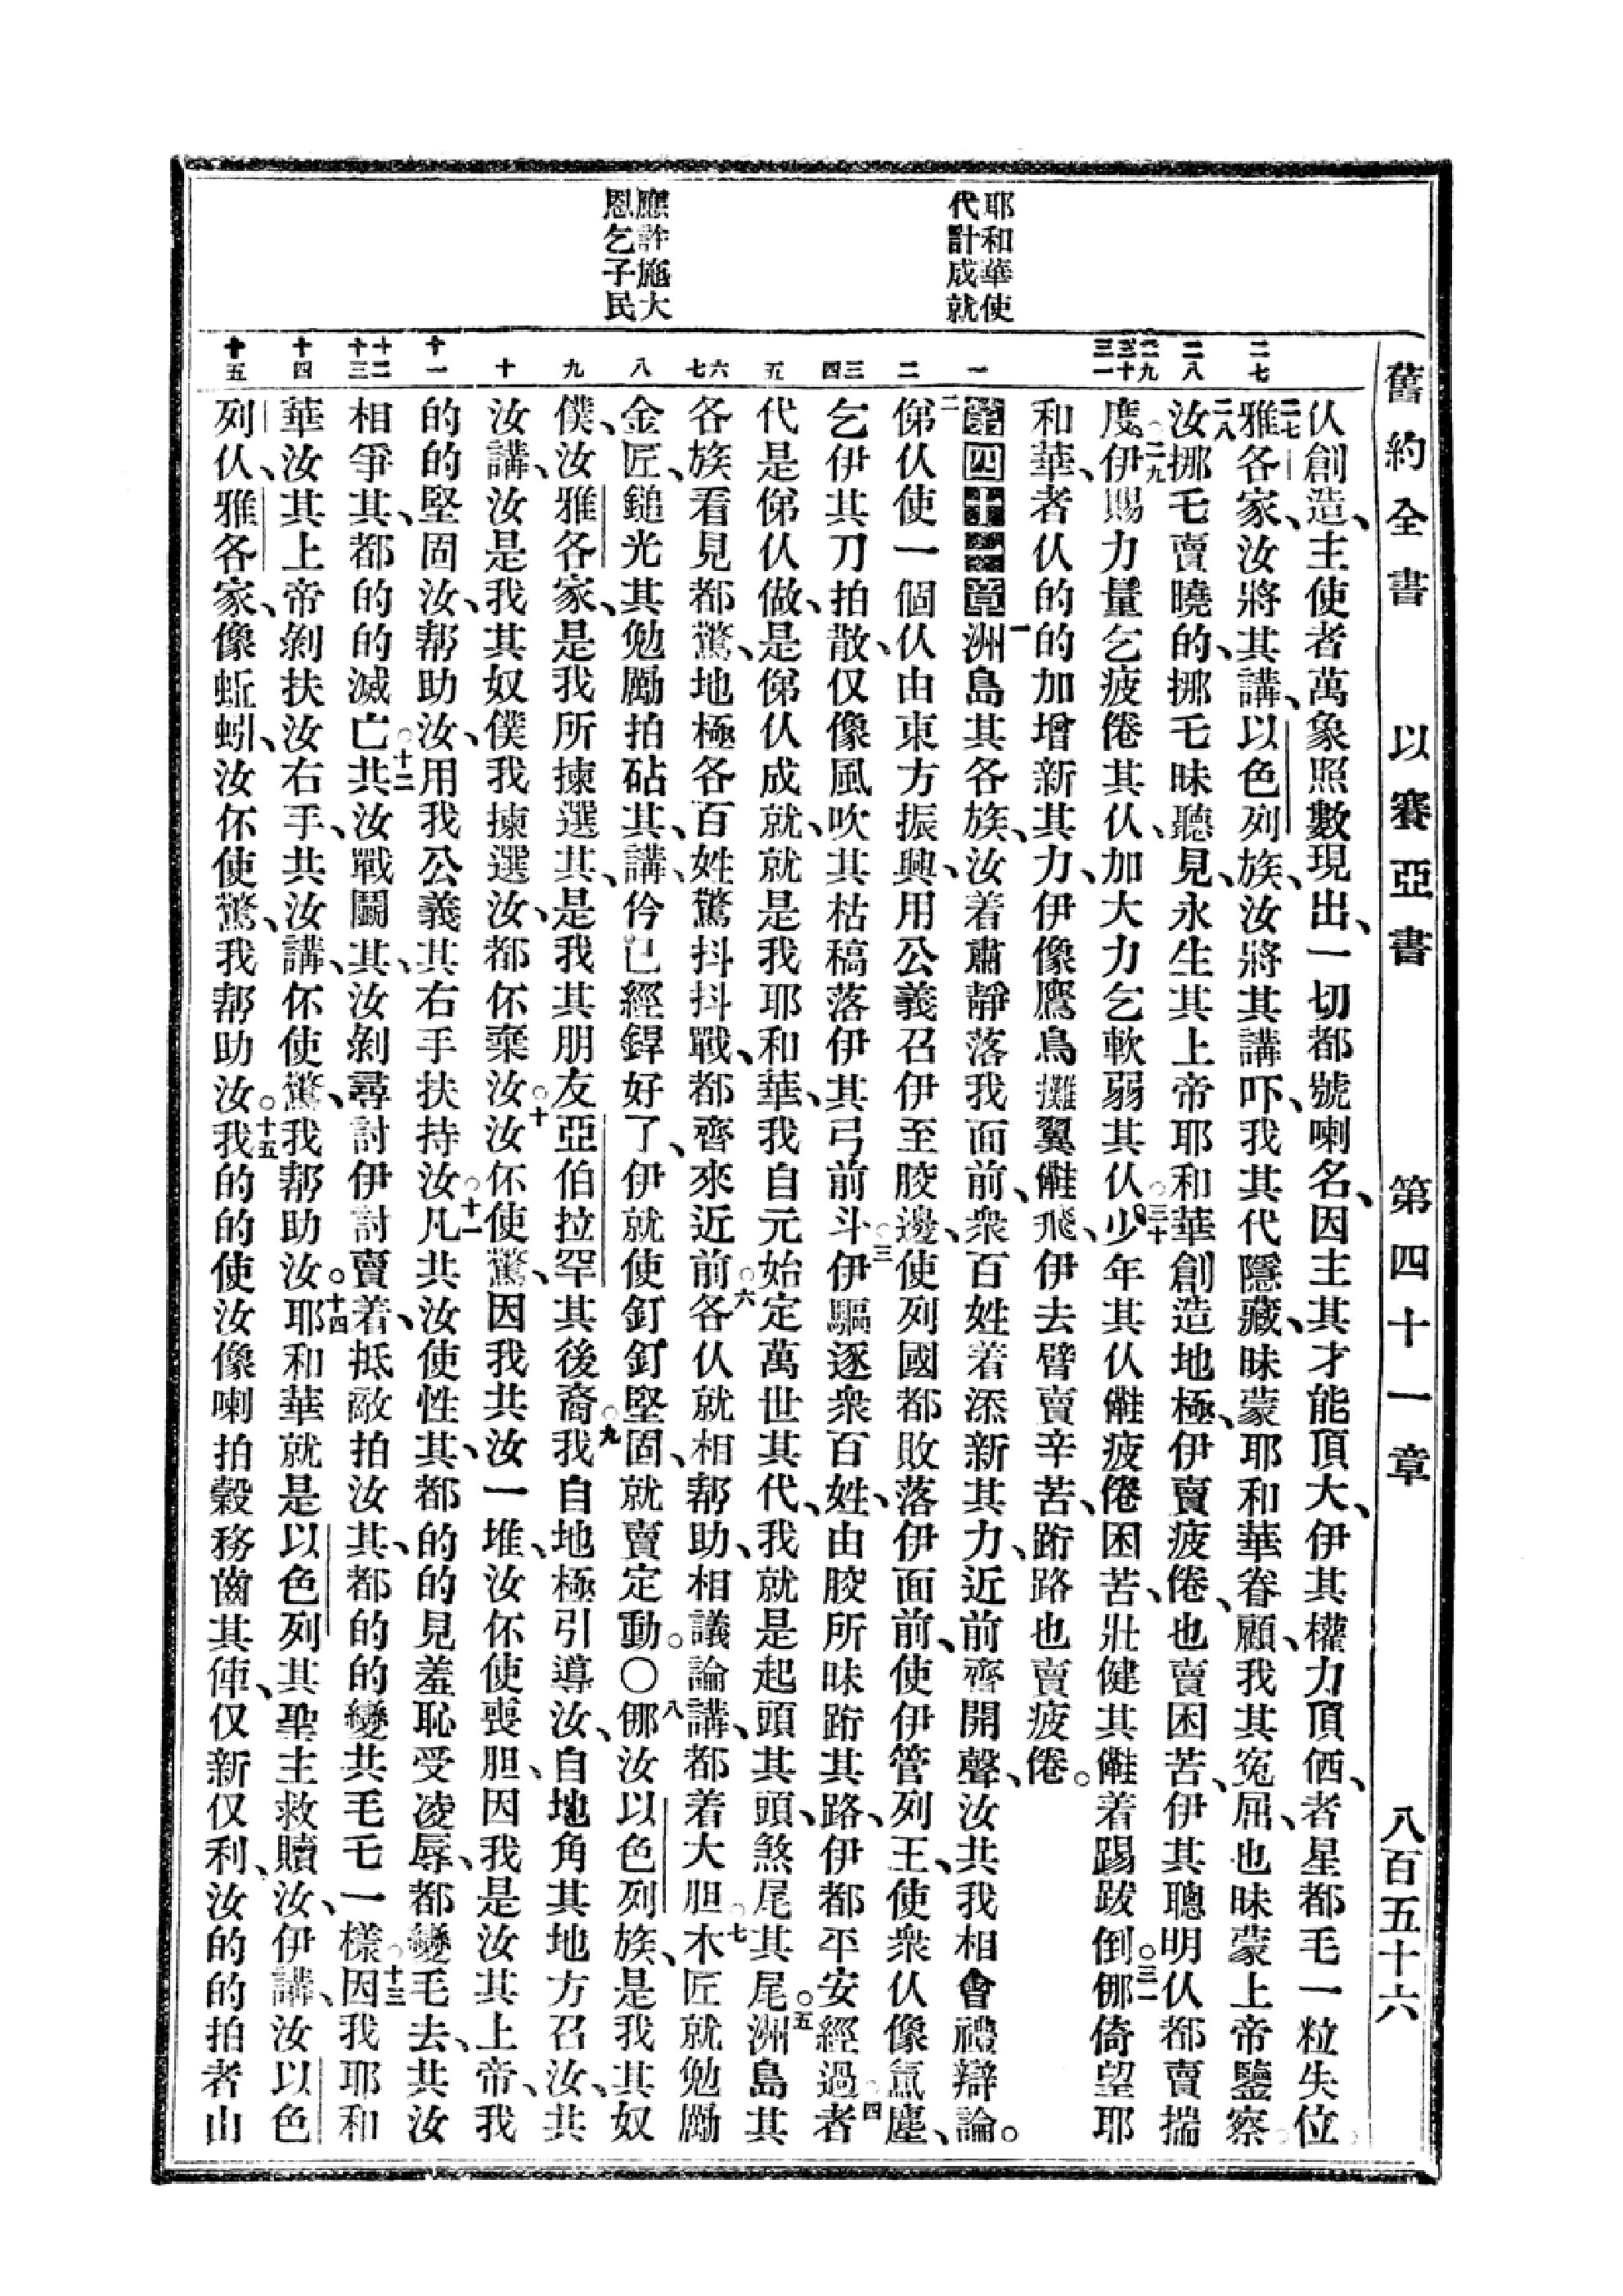 舊約全書 以賽亞書 第四十一章 八百五十六
耶和華使
代計成就
應許施大
恩乞子民
二七
二八
二九
三十
三一
一
二
三
四
五
六
七
八
九
十
十一
十二
十三
十四
十五
仈創造、主使者萬象照數現出、一切都號喇名、因主其才能頂大、伊其權力頂𠌥、者星都毛一粒失位。
二七雅各家、汝將其講、以色列族、汝將其講吓、我其代隱藏、昧蒙耶和華眷顧、我其寃屈、也昧蒙上帝鑒察。
二八汝挪毛賣曉的、挪毛昧聽見、永生其上帝耶和華創造地極、伊賣疲倦、也賣困苦、伊其聰明仈都賣揣
度。二九伊賜力量乞疲倦其仈、加大力乞軟弱其仈。三十少年其仈㒕疲倦困苦、壯健其㒕着踢跋倒。三一倻倚望耶
和華、者仈的的加增新其力、伊像鷹鳥攤翼㒕飛、伊去䟆賣辛苦、跕路也賣疲倦。
第四十一章一洲島其各族、汝着肅靜落我面前、衆百姓着添新其力、近前齊開聲、汝共我相會禮辯論。
二俤仈使一個仈由東方振興、用公義召伊至骹邊、使列國都敗落伊面前、使伊管列王、使衆仈像氣塵、
乞伊其刀拍散、仅像風吹其枯稿落伊其弓前斗。三伊驅逐衆百姓、由骹所昧跕其路、伊都平安經過。四者
代是俤仈做、是俤仈成就、就是我耶和華、我自元始定萬世其代、我就是起頭其頭、煞尾其尾。五洲島其
各族看見都驚、地極各百姓驚抖抖戰、都齊來近前。六各仈就相帮助、相議論講、都着大胆。七木匠就勉勵
金匠、鎚光其勉勵拍砧其、講、仱已經銲好了、伊就使釘釘堅固、就賣定動。〇八倻汝以色列族、是我其奴
僕、汝雅各家、是我所揀選其、是我其朋友亞伯拉罕其後裔。九我自地極引導汝、自地角其地方召汝、共
汝講、汝是我其奴僕、我揀選汝、都伓棄汝。十汝伓使驚、因我共汝一堆、汝伓使喪胆、因我是汝其上帝、我
的的堅固汝、帮助汝、用我公義其右手扶持汝。十一凡共汝使性其、都的的見羞恥受凌辱、都變毛去、共汝
相爭其、都的的滅亡。十二共汝戰鬭其、汝剝尋討伊討賣着、抵敵拍汝其、都的的變共毛乇一樣。十三因我耶和
華汝其上帝剝扶汝右手、共汝講、伓使驚、我帮助汝。十四耶和華就是以色列其聖主救贖汝、伊講、汝以色
列仈、雅各家、像蚯蚓、汝伓使驚、我帮助汝。十五我的的使汝像喇拍穀務齒其俥、仅新仅利、汝的的拍者山